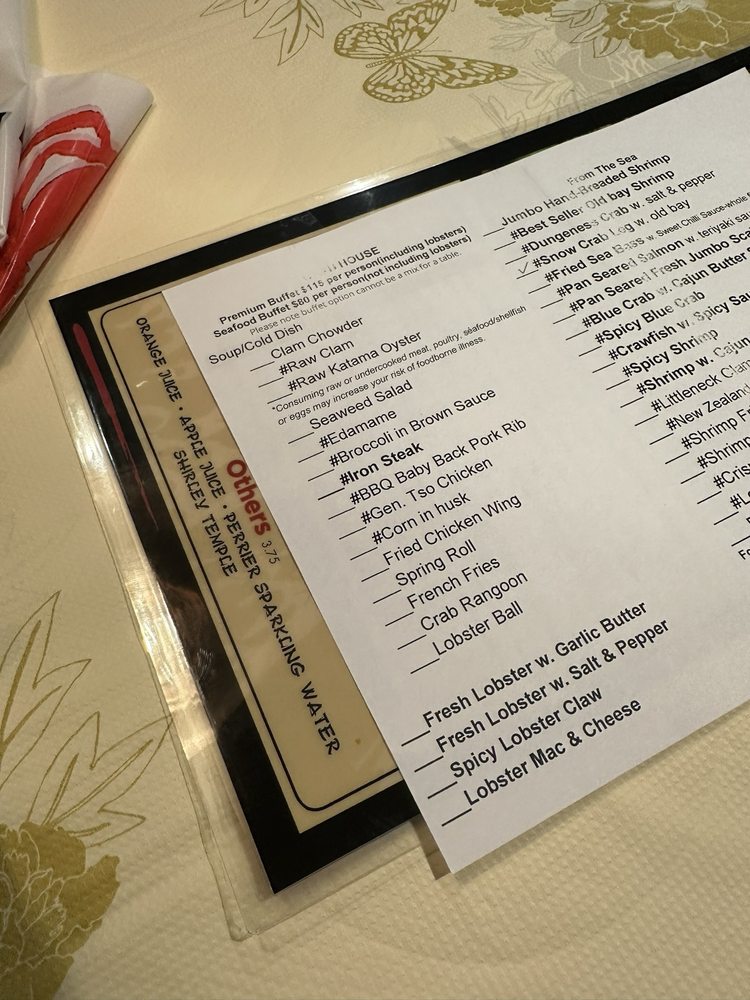 HOUSE
Premium Buffet $115 per person(including lobsters)
Seafood Buffet $60 per person(not including lobsters)
Please note buffet option cannot be a mix for a table.
Soup/Cold Dish
___Clam Chowder
___#Raw Clam
___#Raw Katama Oyster
*Consuming raw or undercooked meat, poultry, seafood/shellfish
or eggs may increase your risk of foodborne illness.
___Seaweed Salad
___#Edamame
___#Broccoli in Brown Sauce
___#Iron Steak
___#BBQ Baby Back Pork Rib
___#Gen. Tso Chicken
___#Corn in husk
___Fried Chicken Wing
___Spring Roll
___French Fries
___Crab Rangoon
___Lobster Ball
___Fresh Lobster w. Garlic Butter
___Fresh Lobster w. Salt & Pepper
___Spicy Lobster Claw
___Lobster Mac & Cheese
From The Sea
___Jumbo Hand-Breaded Shrimp
___#Best Seller Old bay Shrimp
___#Dungeness Crab w. salt & pepper
___#Snow Crab Leg w. old bay
___#Fried Sea Bass w. Sweet Chilli Sauce-whole
___#Pan Seared Salmon w. teriyaki
___#Pan Seared Fresh Jumbo
___#Blue Crab w. Cajun Butter
___#Spicy Blue Crab
___#Crawfish w. Spicy
___#Spicy Shrimp
___#Shrimp w. Cajun
___#Littleneck
___#New Zealand
___#Shrimp
___#Shrimp
Others 3.75
ORANGE JUICE • APPLE JUICE • PERRIER SPARKLING WATER
SHIRLEY TEMPLE